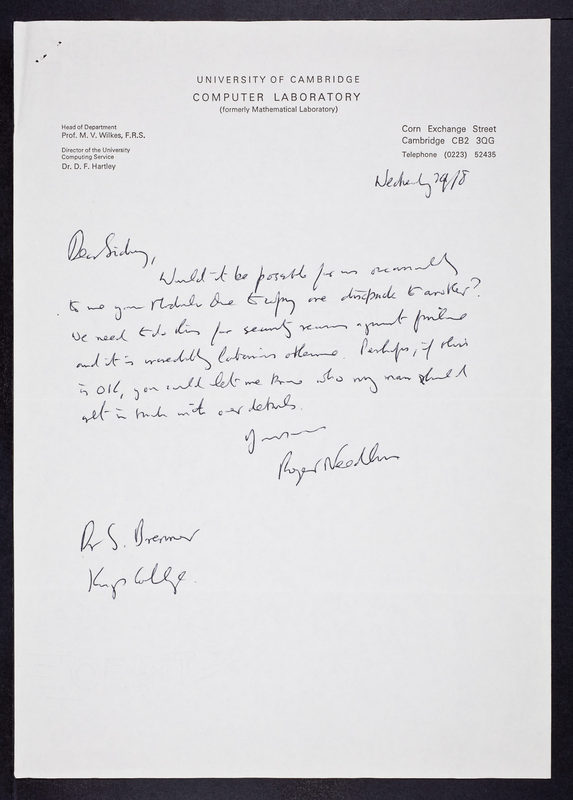 UNIVERSITY OF CAMBRIDGE
COMPUTER LABORATORY
(formerly Mathematical Laboratory)
Head of Department
Prof. M. V. Wilkes, F.R.S.
Director of the University
Computing Service
Dr. D. F. Hartley
Corn Exchange Street
Cambridge CB2 3QG
Telephone (0223) 52435
Wednesday 29/8
Dear Sidney,
Would it be possible for us occasionally
to use your Modular One to copy one discpack to another?
We need to do this for security reasons against failure
and it is incredibly laborious otherwise. Perhaps, if this
is OK, you could let me know who my man should
get in touch with over details.
Yours
Roger Needham
Dr S. Brenner
Kings College.